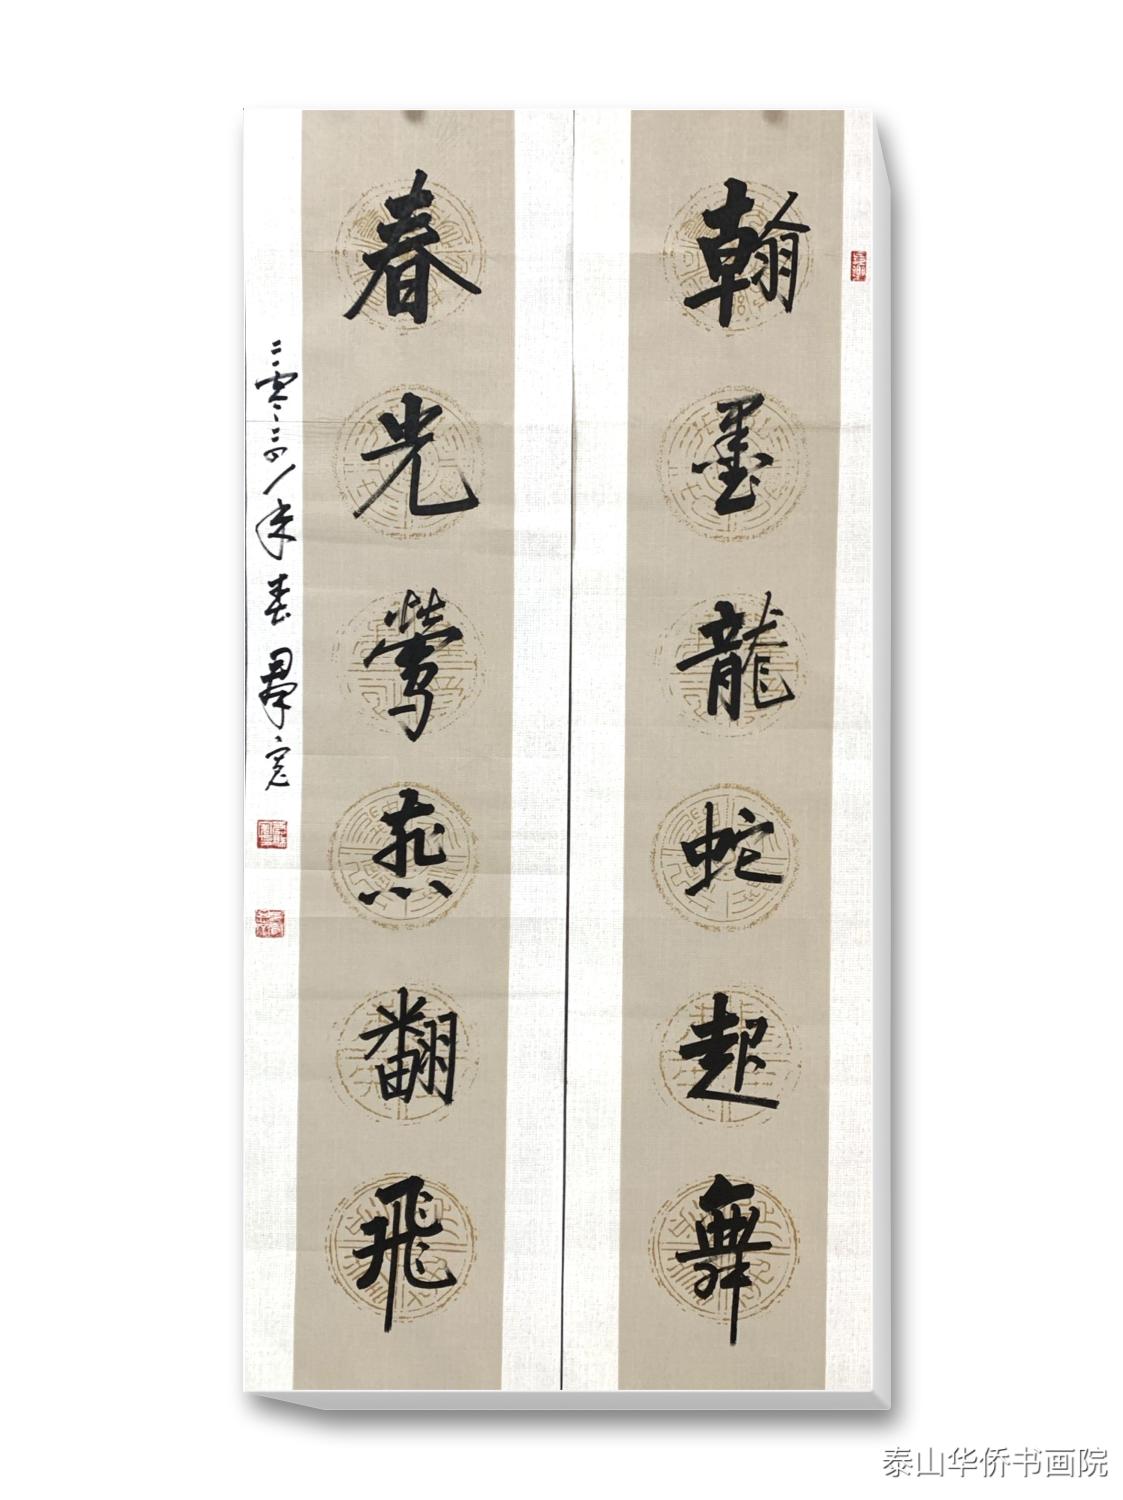 翰墨龍蛇起舞
春光鶯燕翩飛
二零二四年春
泰山华侨书画院